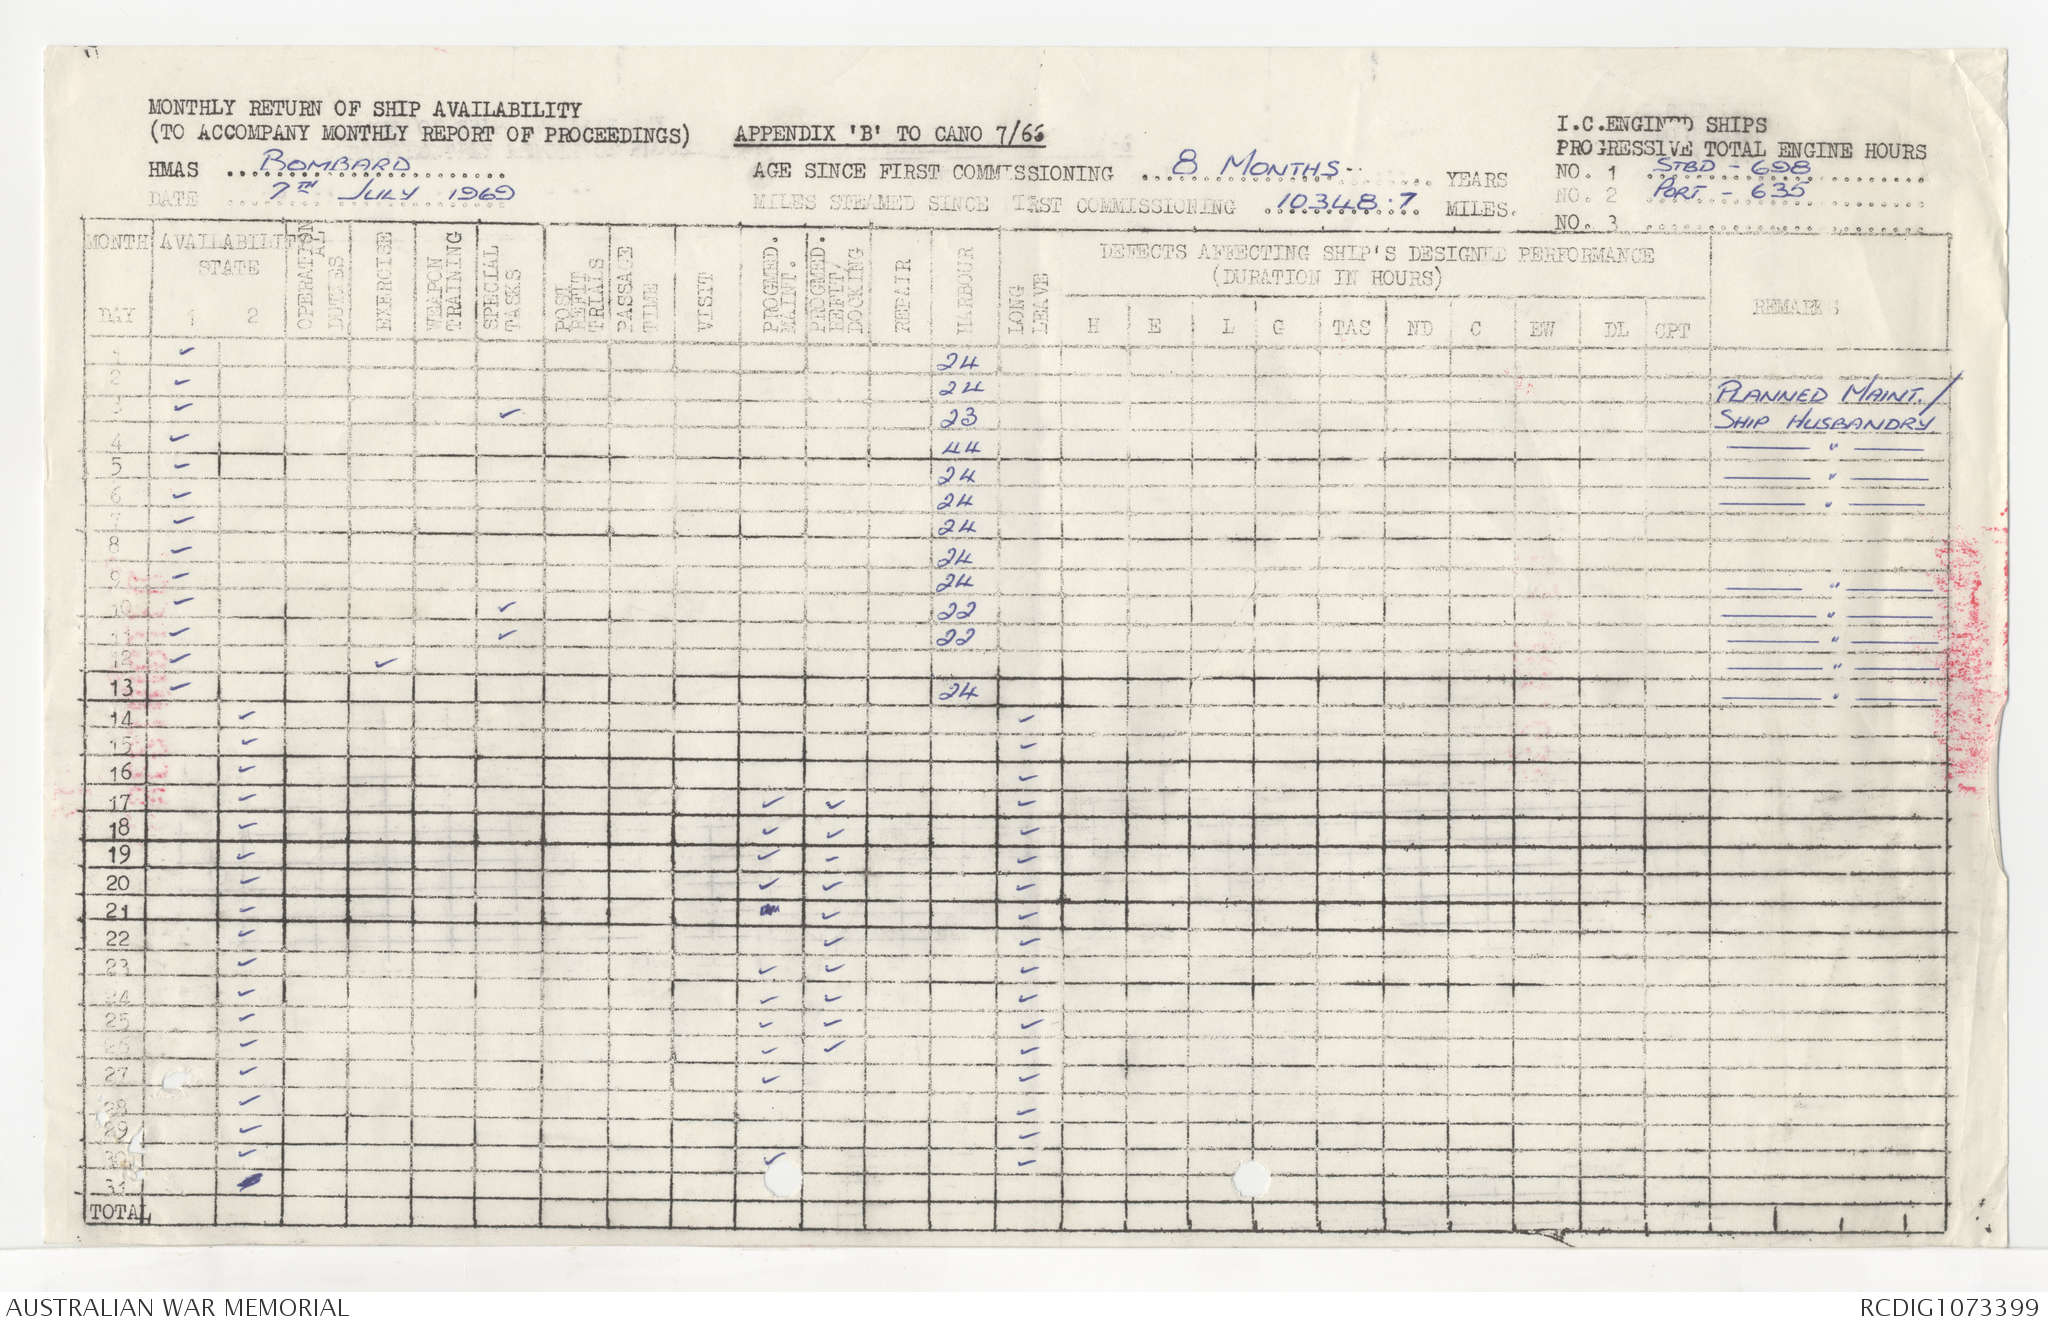 MONTHLY RETURN OF SHIP AVAILABILITY
(TO ACCOMPANY MONTHLY REPORT OF PROCEEDINGS) APPENDIX 'B' TO CANO 7/66
HMAS Bombard
DATE 7TH July 1969
AGE SINCE FIRST COMMISSIONING 8 Months YEARS
MILES STEAMED SINCE FIRST COMMISSIONING 10348.7 MILES.
I.C.ENGINED SHIPS
PROGRESSIVE TOTAL ENGINE HOURS
NO. 1 STBD - 698
NO. 2 PORT - 635
NO. 3
MONTH AVAILABILITY STATE OPERATIONAL DUTIES EXERCISE WEAPON TRAINING SPECIAL TASKS POST REFIT TRIALS PASSAGE TIME VISIT PROGMED. MAINT. PROGMED. REFIT/ DOCKING REPAIR HARBOUR LONG LEAVE DEFECTS AFFECTING SHIP'S DESIGNED PERFORMANCE
(DURATION IN HOURS)
DAY 1 2 H E L G TAS ND C EW DL CPT REMARKS
1 ✓ 24
2 ✓ 24 Planned Maint./
3 ✓ ✓ 23 Ship Husbandry
4 ✓ 44 "
5 ✓ 24 "
6 ✓ 24 "
7 ✓ 24
8 ✓ 24
9 ✓ 24 "
10 ✓ ✓ 22 "
11 ✓ ✓ 22 "
12 ✓ ✓ "
13 ✓ 24 "
14 ✓ ✓
15 ✓ ✓
16 ✓ ✓
17 ✓ ✓ ✓ ✓
18 ✓ ✓ ✓ ✓
19 ✓ ✓ ✓ ✓
20 ✓ ✓ ✓ ✓
21 ✓ ✓ ✓
22 ✓ ✓ ✓
23 ✓ ✓ ✓ ✓
24 ✓ ✓ ✓ ✓
25 ✓ ✓ ✓ ✓
26 ✓ ✓ ✓ ✓
27 ✓ ✓ ✓
28 ✓ ✓
29 ✓ ✓
30 ✓ ✓ ✓
31
TOTAL
AUSTRALIAN WAR MEMORIAL RCDIG1073399